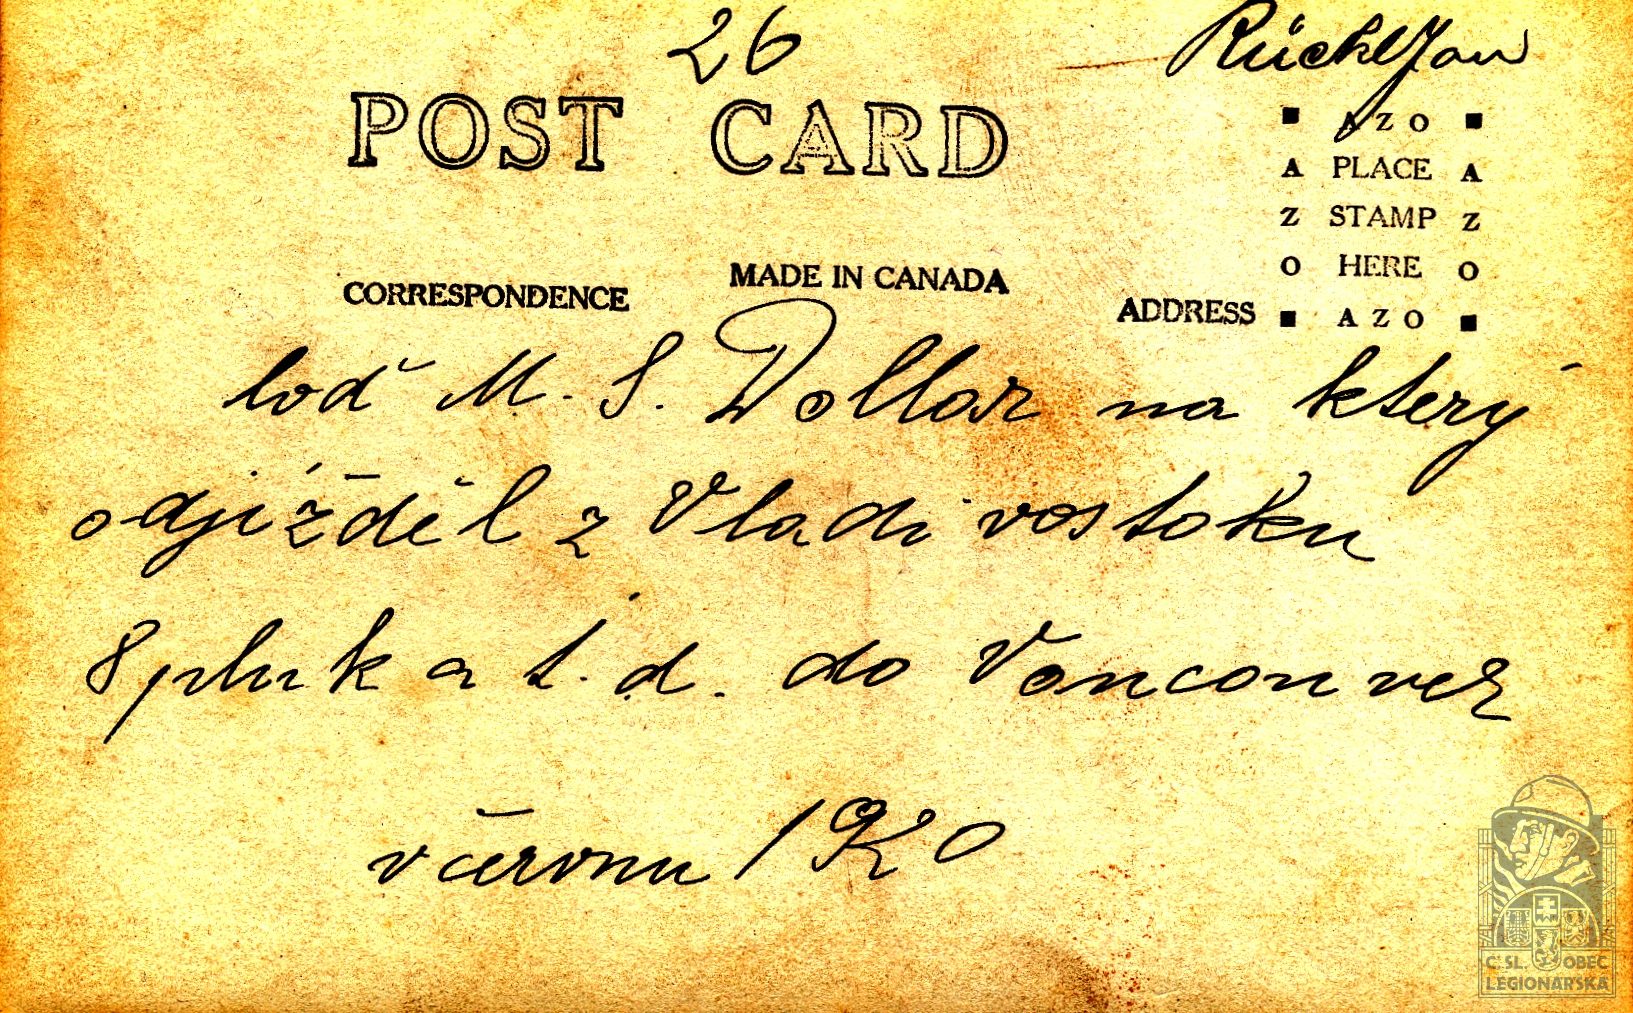 26
Rückl Jan
POST CARD
AZO
A PLACE A
Z STAMP Z
O HERE O
AZO
CORRESPONDENCE
MADE IN CANADA
ADDRESS
loď M. S. Dollar na který
odjížděl z Vladivostoku
8 pluk a t. d. do Vancouver
v červnu 1920
Č. SL. OBEC
LEGIONÁŘSKÁ